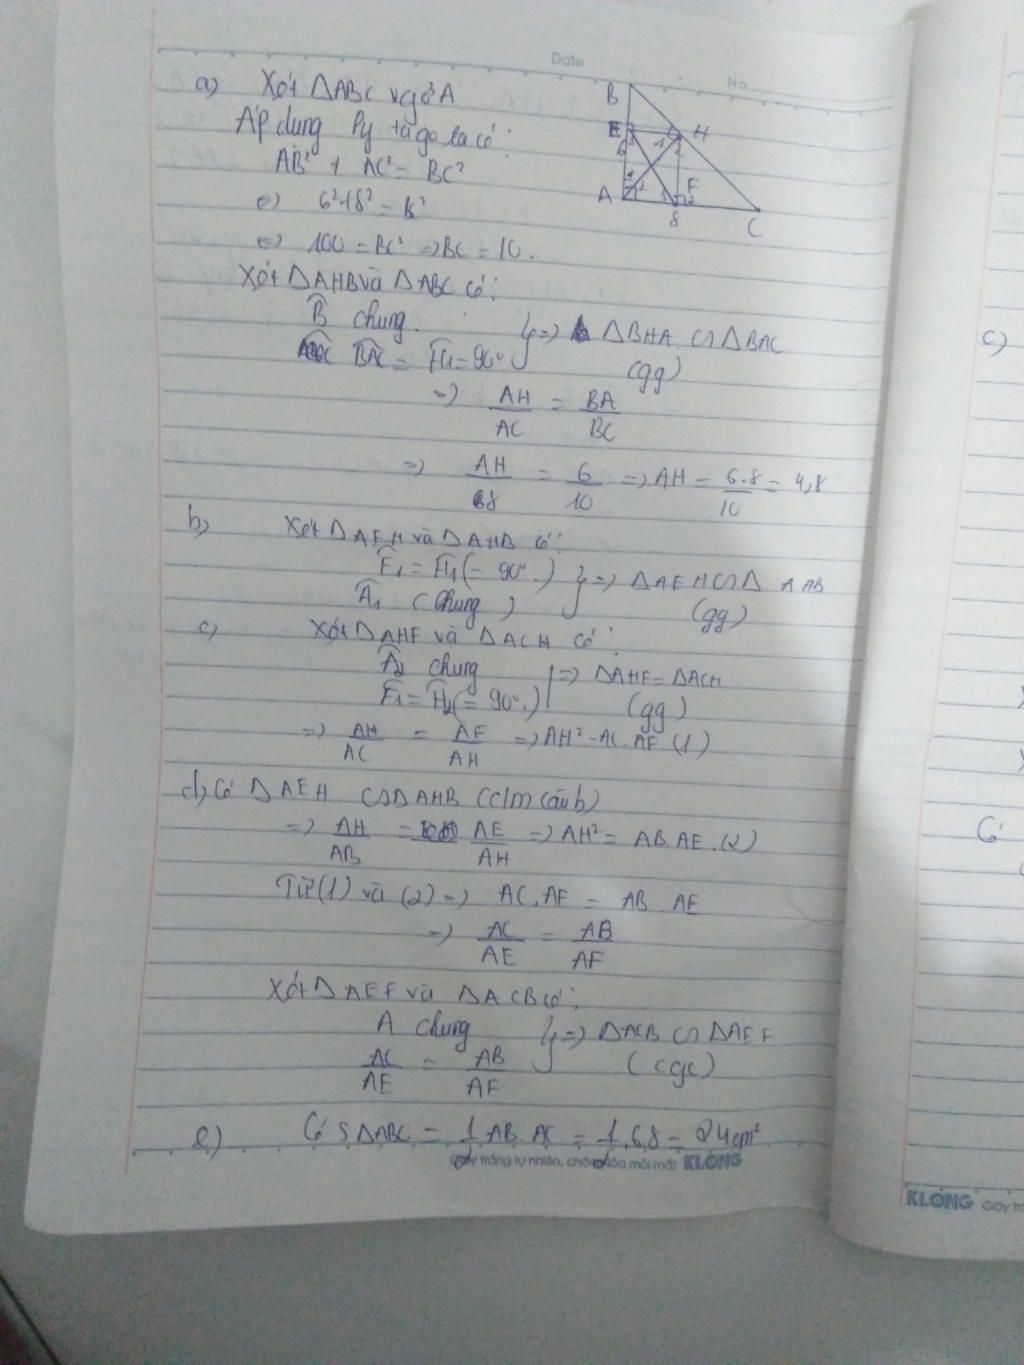 Date
No
a) Xét ΔABC vg ở A
Áp dụng Py ta go ta có:
AB² + AC² = BC²
6² + 8² = B²
100 = BC² => BC = 10.
Xét ΔAHB và ΔABC có:
B̂ chung
BAC = Ĥ₁ = 90° } => ΔBHA ∽ ΔBAC
(gg)
=> AH/AC = BA/BC
=> AH/8 = 6/10 => AH = 6.8/10 = 4,8
b) Xét ΔAEH và ΔAHB có:
Ê₁ = Ĥ₁ (= 90°.) } => ΔAEH ∽ Δ AAB
Â₁ (Chung) (gg)
c) Xét ΔAHF và ΔACH có:
Â₂ chung => ΔAHF = ΔACH
F̂₁ = Ĥ₂ (= 90°.) (gg)
=> AH/AC = AF/AH => AH² = AC.AF (1)
d) Có ΔAEH ∽ ΔAHB (c/m câu b)
=> AH/AB = AE/AH => AH² = AB.AE.(2)
Từ (1) và (2) => AC.AF = AB AE
=> AC/AE = AB/AF
Xét ΔAEF và ΔACB có:
A chung } => ΔACB ∽ ΔAEF
AC/AE = AB/AF (cgc)
e) Có SΔABC = 1/2 AB AC = 1/2.6.8 = 24cm²
Giấy trắng tự nhiên, chống lóa mỏi mắt KLONG
B
E
H
6
A
F
8
C
c)
Có
KLONG Giấy tr